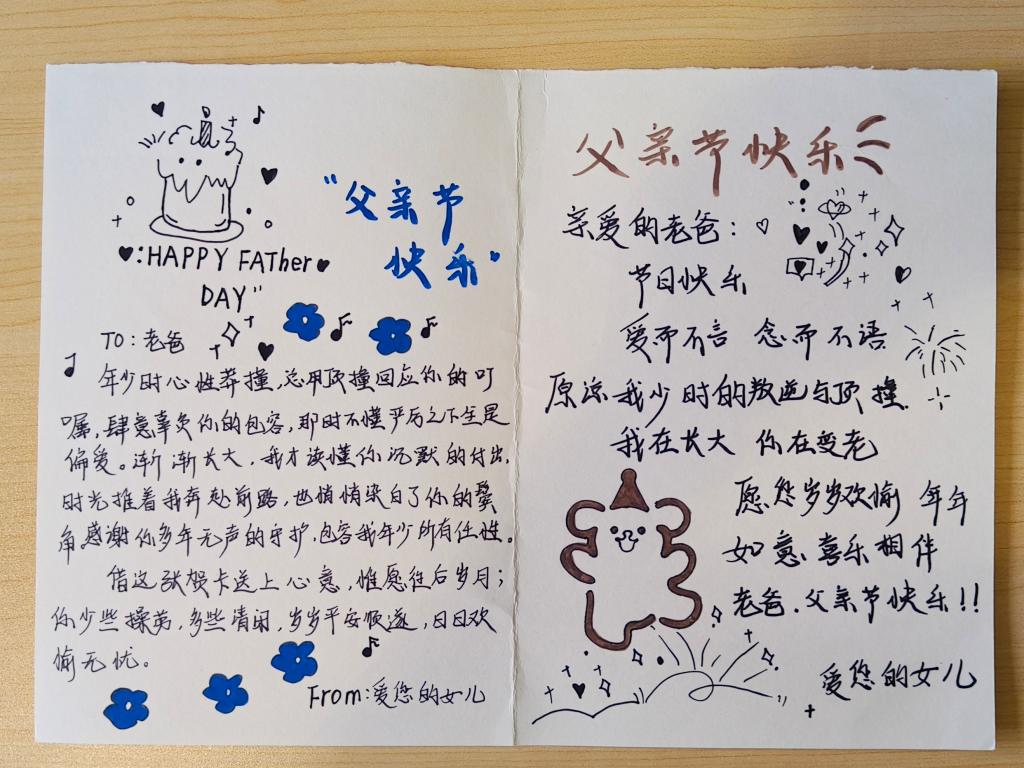 :HAPPY FATher
DAY"
"父亲节
快乐"
TO: 老爸
年少时心性莽撞,总用顶撞回应你的叮
嘱,肆意辜负你的包容,那时不懂严厉之下全是
偏爱。渐渐长大,我才读懂你沉默的付出,
时光推着我奔赴前路,也悄悄染白了你的鬓
角。感谢你多年无声的守护,包容我年少所有任性。
借这张贺卡送上心意,惟愿往后岁月;
你少些操劳,多些清闲,岁岁平安顺遂,日日欢
愉无忧。
From:爱您的女儿
父亲节快乐
亲爱的老爸:
节日快乐
爱而不言 念而不语
原谅我少时的叛逆与顶撞.
我在长大 你在变老
愿您岁岁欢愉 年年
如意 喜乐相伴
老爸.父亲节快乐!!
爱您的女儿